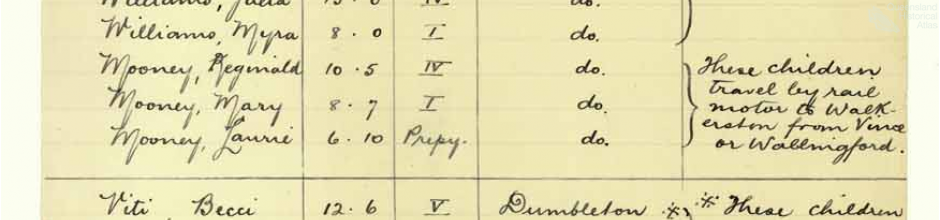 Williams, Julia 13.0 IV do.
Williams, Myra 8.0 I do.
Mooney, Reginald 10.5 IV do. These children
travel by rail
Mooney, Mary 8.7 I do. motor to Walk-
erston from Vince
Mooney, Laurie 6.10 Prepy. do. or Wallingford.
Viti Becci 12.6 V Dumbleton ※ ※ These children